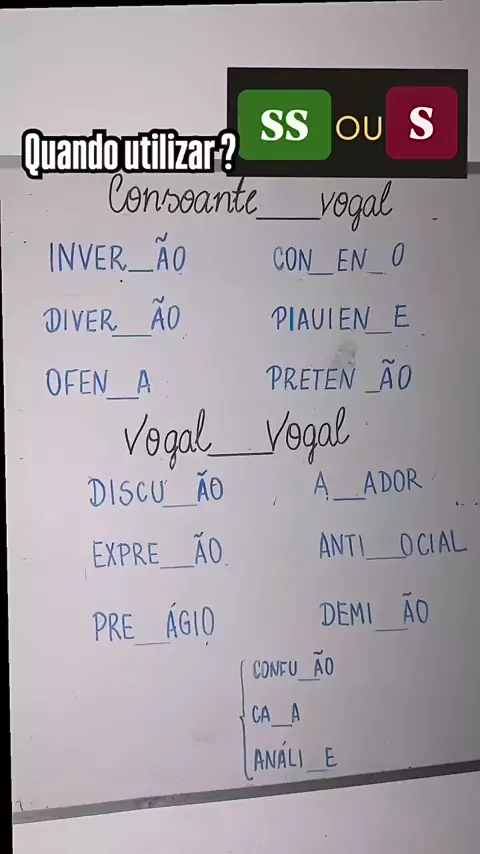 SS OU S
Quando utilizar ?
Consoante___vogal
INVER__ÃO CON__EN_O
DIVER__ÃO PIAUIEN__E
OFEN__A PRETEN_ÃO
Vogal___Vogal
DISCU__ÃO A__ADOR
EXPRE__ÃO. ANTI__OCIAL
PRE__ÁGIO DEMI__ÃO
CONFU__ÃO
CA__A
ANÁLI__E